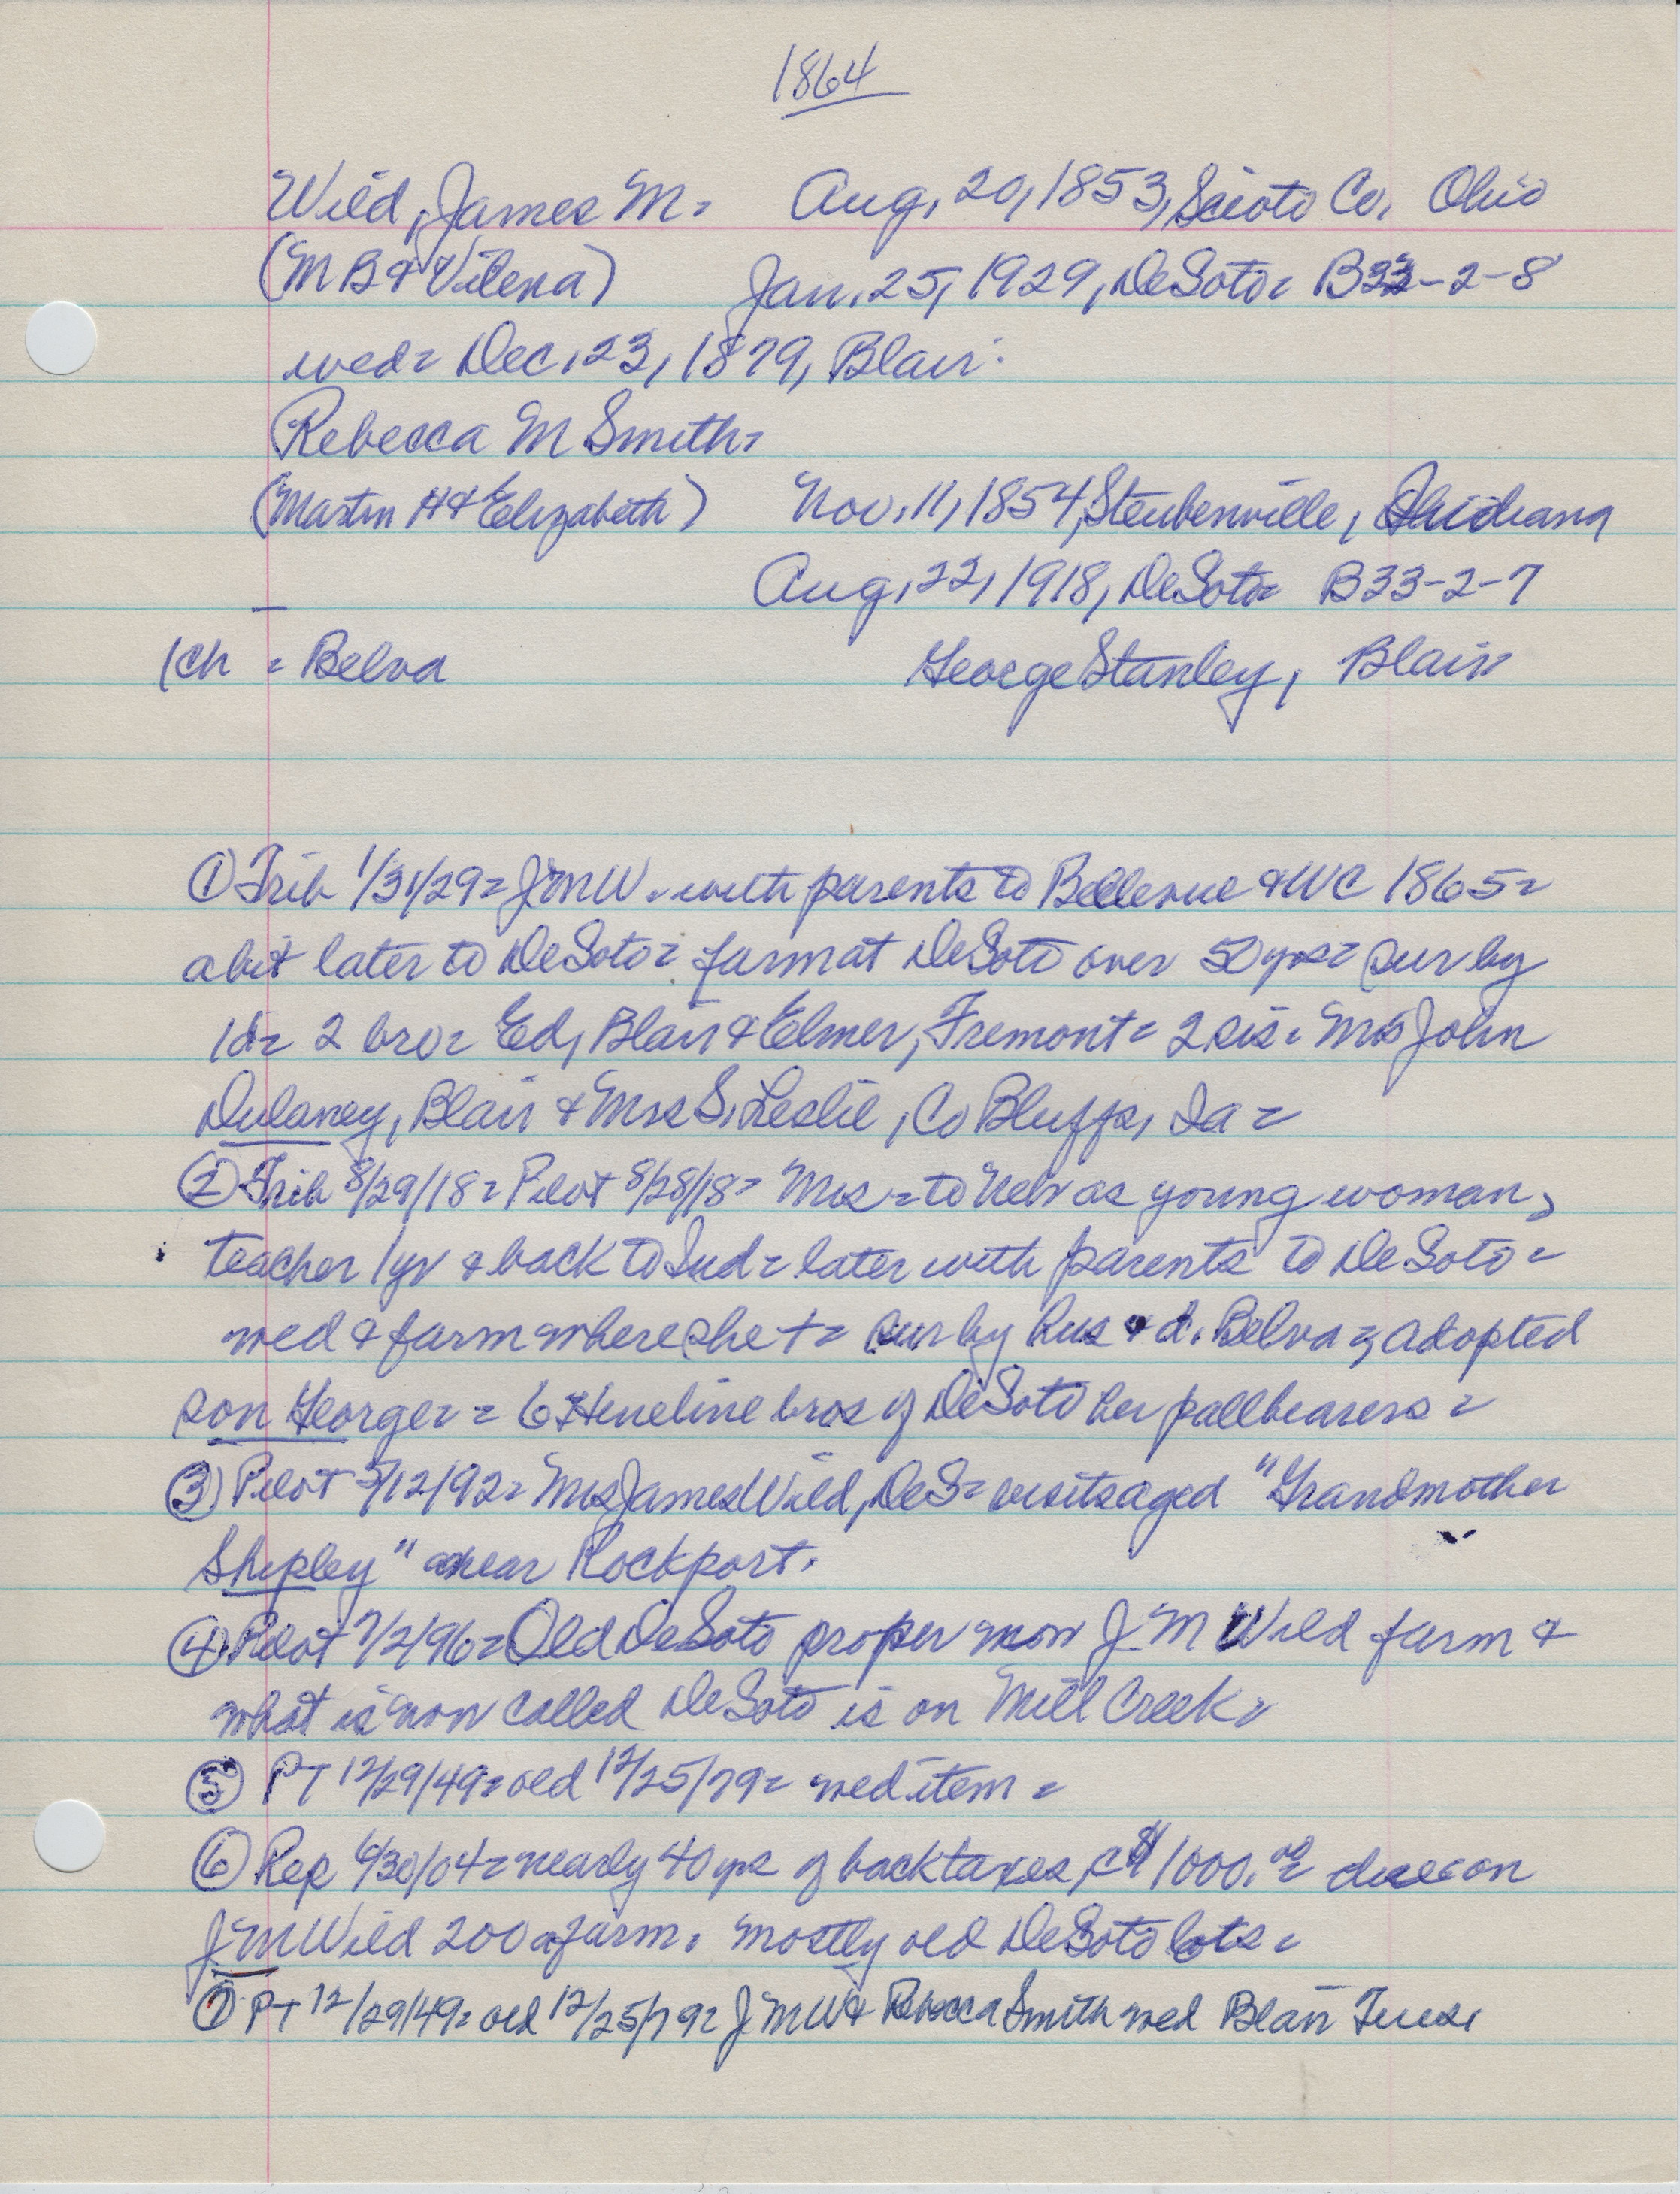 1864
Wild, James M. Aug, 20, 1853, Scioto Co, Ohio
(M B & Vilena) Jan. 25, 1929, DeSoto = B33-2-8
wed = Dec. 23, 1879, Blair.
Rebecca M Smith =
(Martin H & Elizabeth) Nov. 11, 1854, Steubenville, Indiana
Aug, 22, 1918, DeSoto = B33-2-7
1ch = Belva George Stanley, Blair
① Trib 1/31/29 = JMW. with parents to Bellevue & WC 1865 =
a bit later to DeSoto = farm at DeSoto over 50 yrs = sur by
1d = 2 bro = Ed, Blair & Elmer, Fremont = 2 sis = Mrs John
Dulaney, Blair & Mrs S. Leslie, Co Bluffs, Ia =
② Trib 8/29/18 = Pilot 8/28/18 = Mrs = to Nebr as young woman,
teacher 1 yr & back to Ind = later with parents to DeSoto =
wed & farm where she + = sur by hus & d. Belva = adopted
son George = = 6 Heneline bros of DeSoto her pallbearers =
③ Pilot 5/12/92 = Mrs James Wild, DeS = visits aged "Grandmother
Shipley" near Rockport.
④ Pilot 7/2/96 = Old DeSoto proper now J. M Wild farm &
what is now called DeSoto is on Mill Creek =
⑤ PT 12/29/49 = old 12/25/79 = wed item =
⑥ Rep 6/30/04 = nearly 40 yrs of back taxes, c $1000.00 due on
J M Wild 200 a farm. mostly old DeSoto lots =
⑦ PT 12/29/49 = old 12/25/79 = J M W & Rebecca Smith wed Blair Tues.